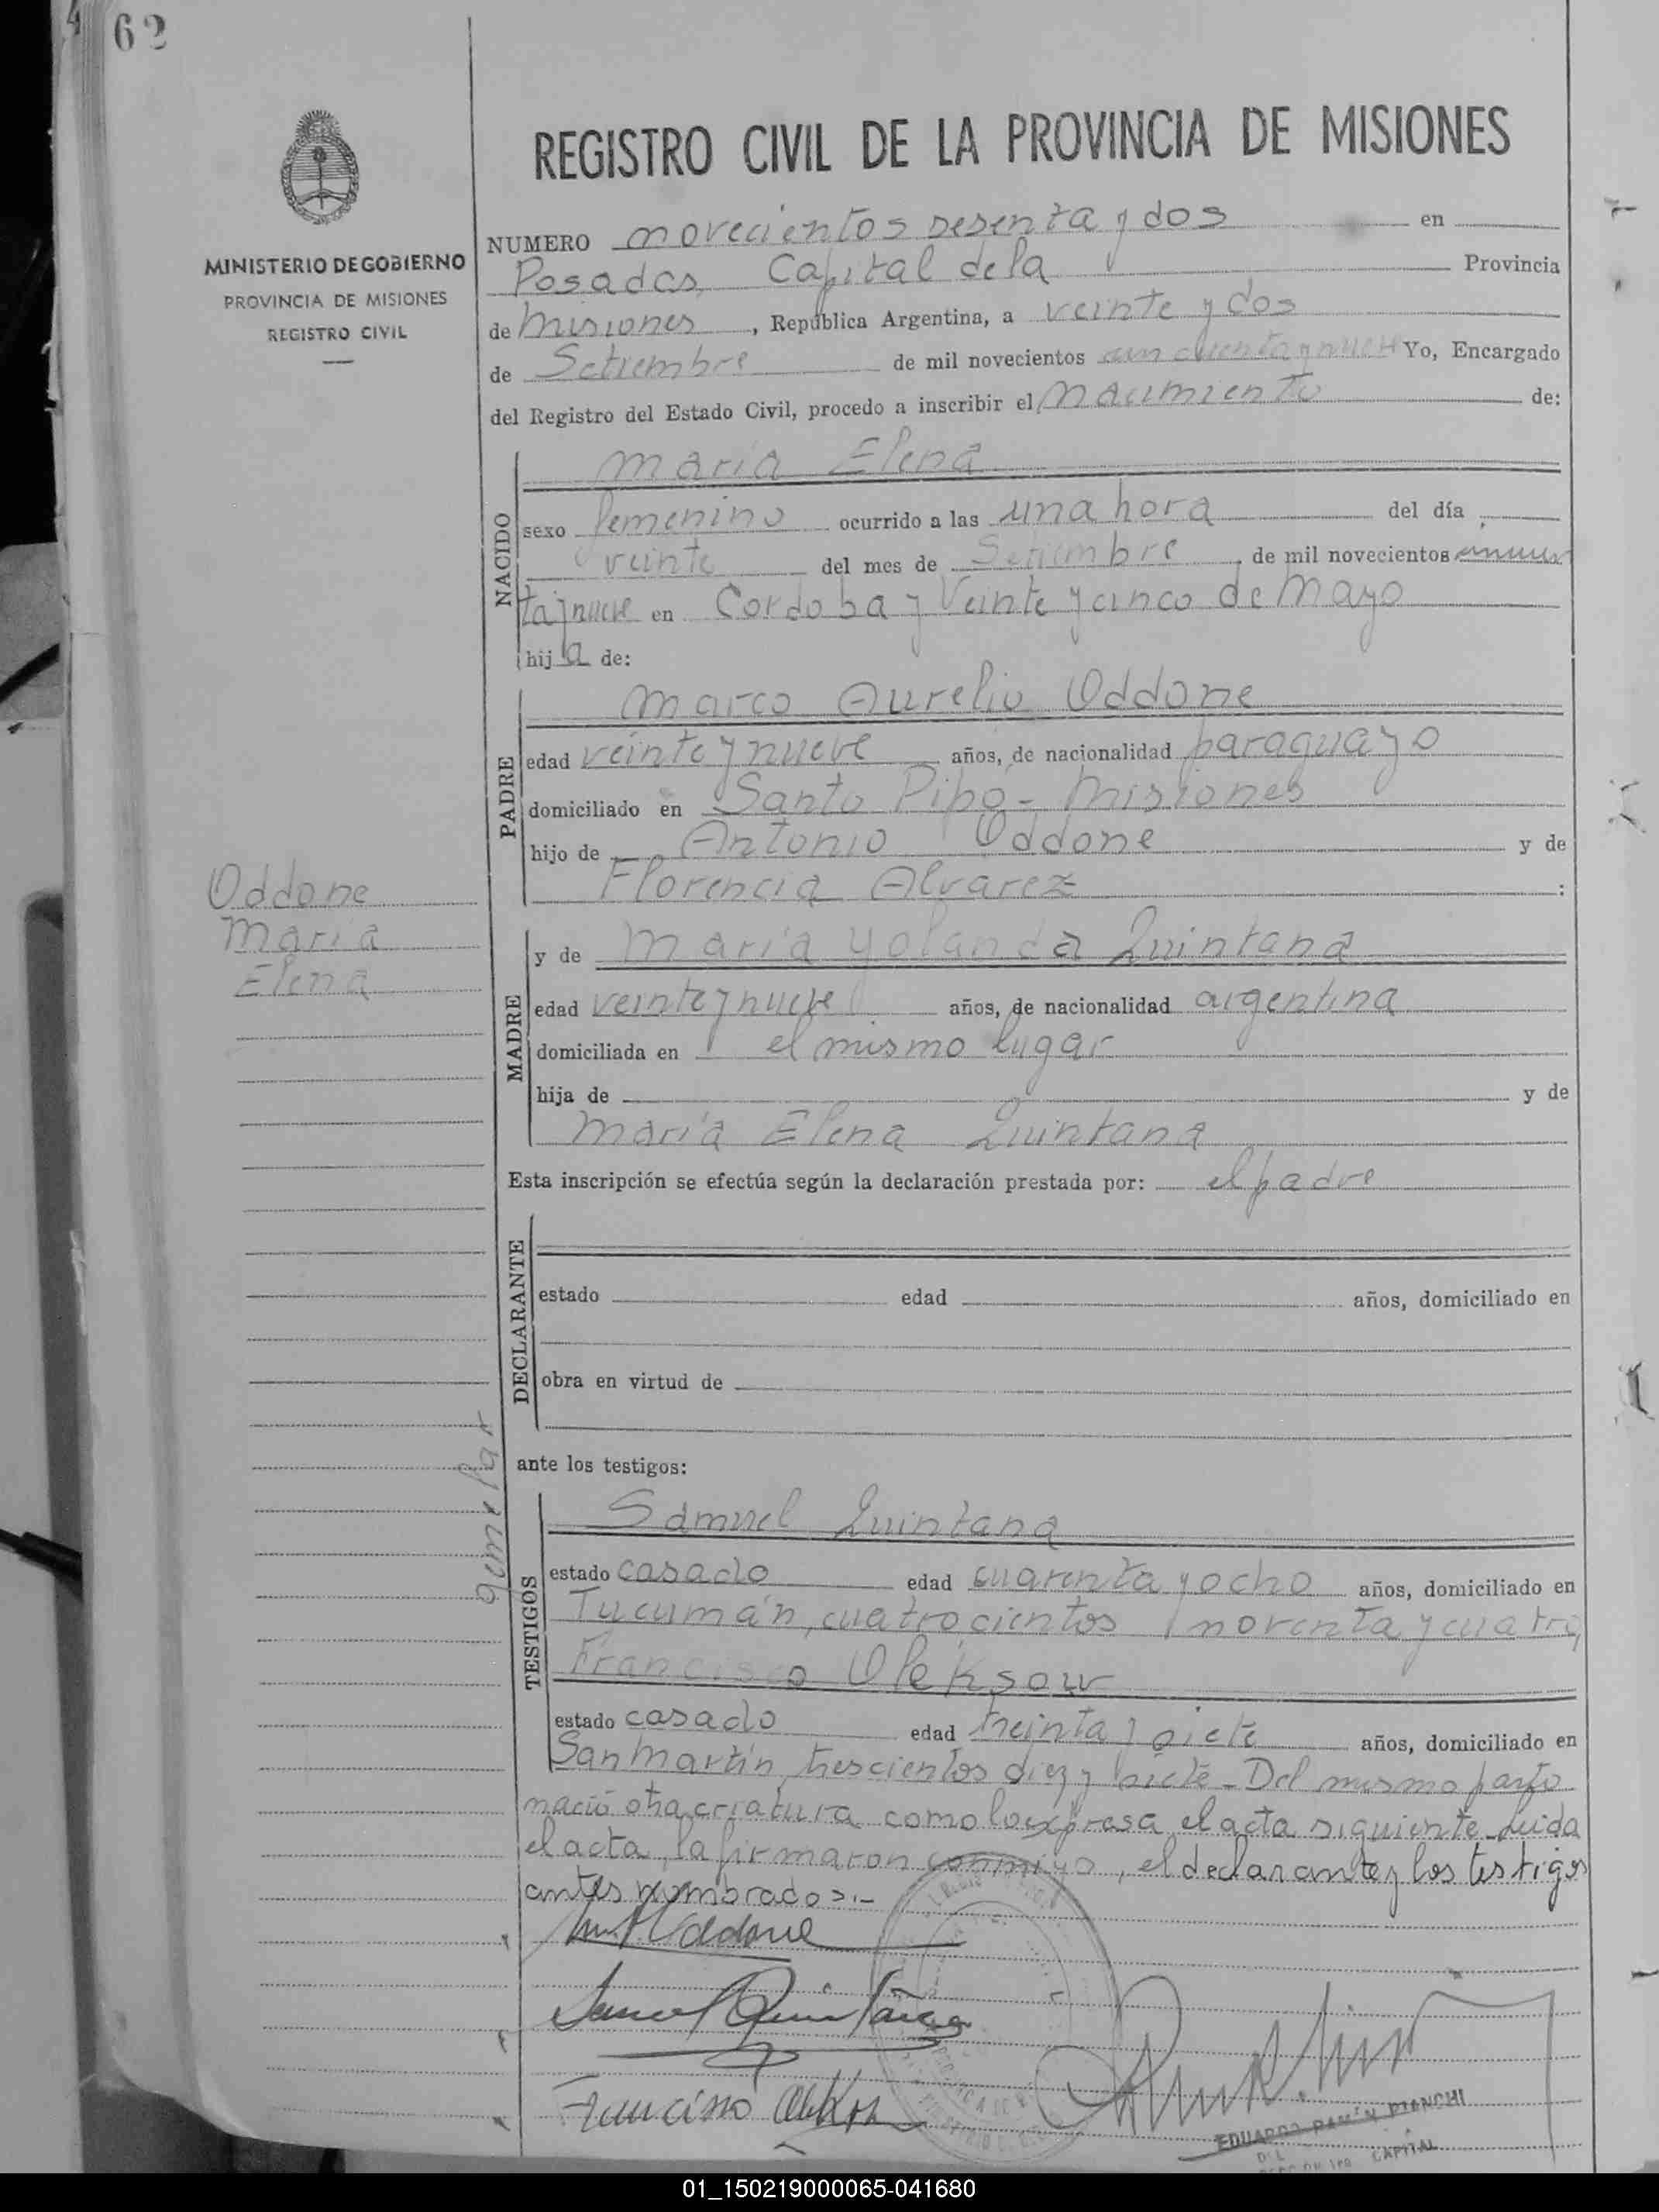 62
REGISTRO CIVIL DE LA PROVINCIA DE MISIONES
MINISTERIO DE GOBIERNO
PROVINCIA DE MISIONES
REGISTRO CIVIL
NUMERO novecientos sesenta y dos en
Posadas, Capital de la Provincia
de Misiones, República Argentina, a veinte y dos
de Setiembre de mil novecientos cincuenta y nueve Yo, Encargado
del Registro del Estado Civil, procedo a inscribir el nacimiento de:
NACIDO
María Elena
sexo femenino ocurrido a las una hora del día
veinte del mes de Setiembre, de mil novecientos cincuen
ta y nueve en Cordoba y Veinte y cinco de Mayo
hija de:
PADRE
Marco Aurelio Oddone
edad veinte y nueve años, de nacionalidad paraguayo
domiciliado en Santo Pipó - Misiones
hijo de Antonio Oddone y de
Florencia Alvarez :
Oddone
María
Elena
MADRE
y de María Yolanda Quintana
edad veinte y nueve años, de nacionalidad argentina
domiciliada en el mismo lugar
hija de y de
María Elena Quintana
Esta inscripción se efectúa según la declaración prestada por: el padre
DECLARANTE
estado edad años, domiciliado en
obra en virtud de
ante los testigos:
TESTIGOS
Samuel Quintana
estado casado edad cuarenta y ocho años, domiciliado en
Tucumán, cuatrocientos noventa y cuatro
Francisco Oleksow
estado casado edad treinta y siete años, domiciliado en
San Martín, trescientos diez y siete - Del mismo parto
nació otra criatura como lo expresa el acta siguiente. Leida
el acta, la firmaron conmigo, el declarante y los testigos
antes nombrados.-
Oddone
Samuel Quintana
Francisco
EDUARDO RAMÓN BIANCHI
CAPITAL
01_150219000065-041680